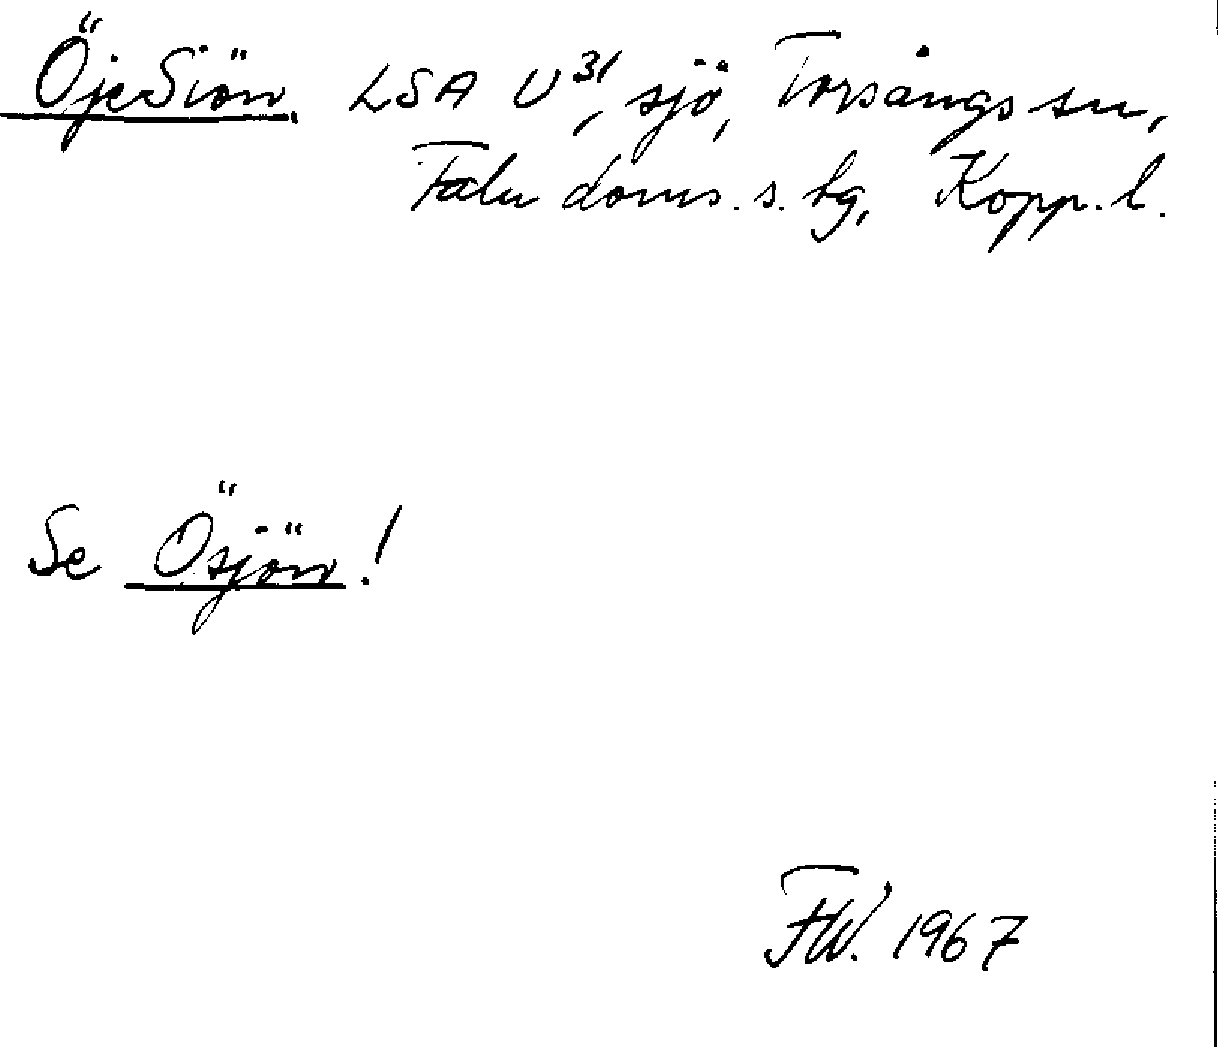 ÖjeSiön. LSA U³¹, sjö, Torsångs sn,
Falu doms. s. tg, Kopp. l.
Se Ösjön!
FW. 1967